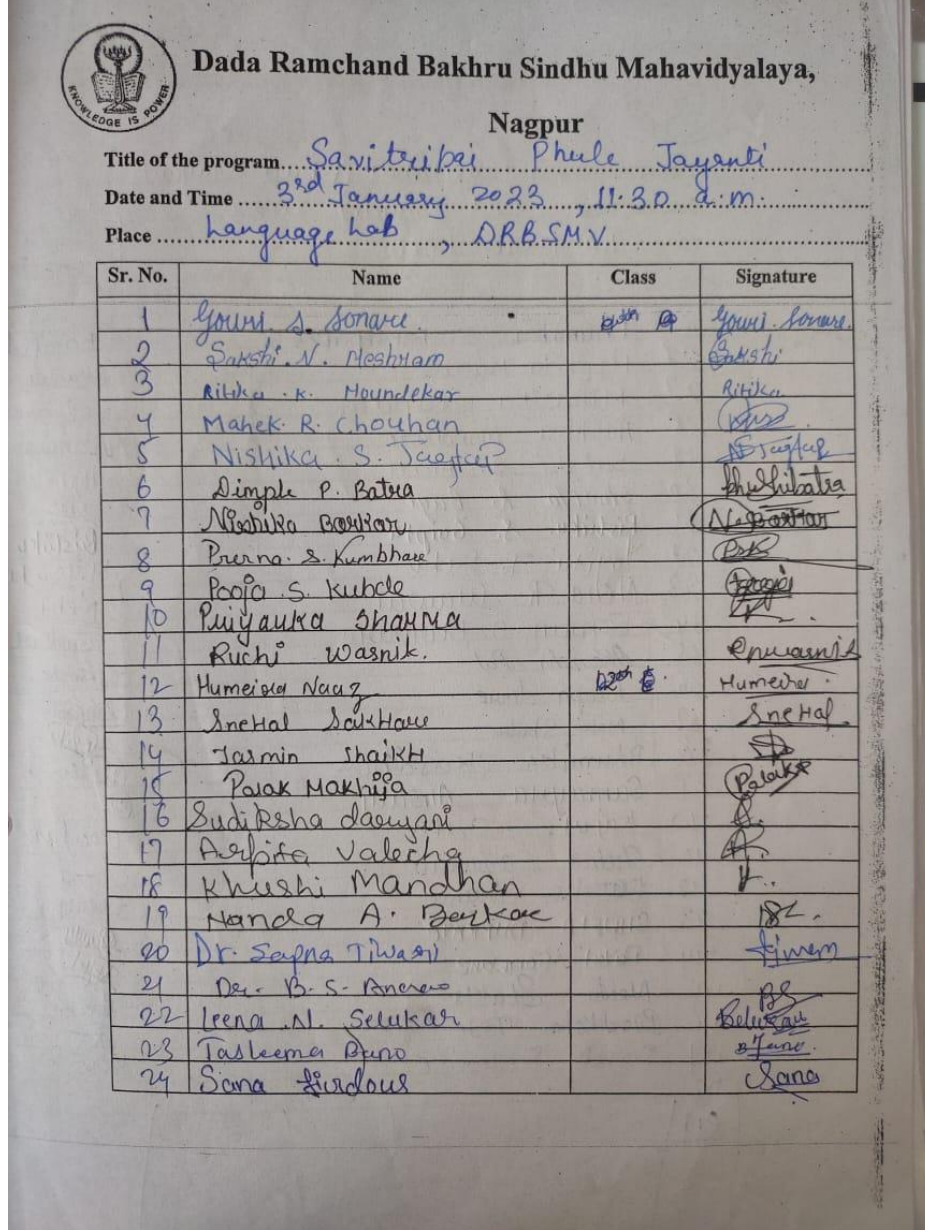 KNOWLEDGE IS POWER
Dada Ramchand Bakhru Sindhu Mahavidyalaya,
Nagpur
Title of the program....Savitribai Phule Jayanti
Date and Time .....3rd January 2023, 11.30 a.m.
Place .......Language Lab, D.R.B.S.M.V.
Sr. No. Name Class Signature
1 Gouri S. Sonare. Gouri. Sonare.
2 Sakshi. N. Meshram Sakshi
3 Ritika . K. Houndekar Ritika
4 Mahek. R. Chouhan
5 Nishika . S. Jagtap NSJagtap
6 Dimple P. Batra
7 Nishika Borkar N. Borkar
8 Prerna. S. Kumbhare PSK
9 Pooja S. Kubde
10 Priyanka Sharma
11 Ruchi Wasnik.
12 Humeira Naaz 12th Humeira
13 SneHal SakHare SneHal
14 Jasmin ShaikH
15 Palak Makhija Palak
16 Sudiksha daryani
17 Arpita Valecha A.
18 Khushi Mandhan K..
19 Nanda A. Borkar
20 Dr. Sapna Tiwari
21 Dr. B. S. BS
22 Leena .N. Selukar
23 Tasleema Bano
24 Sana firdous Sana